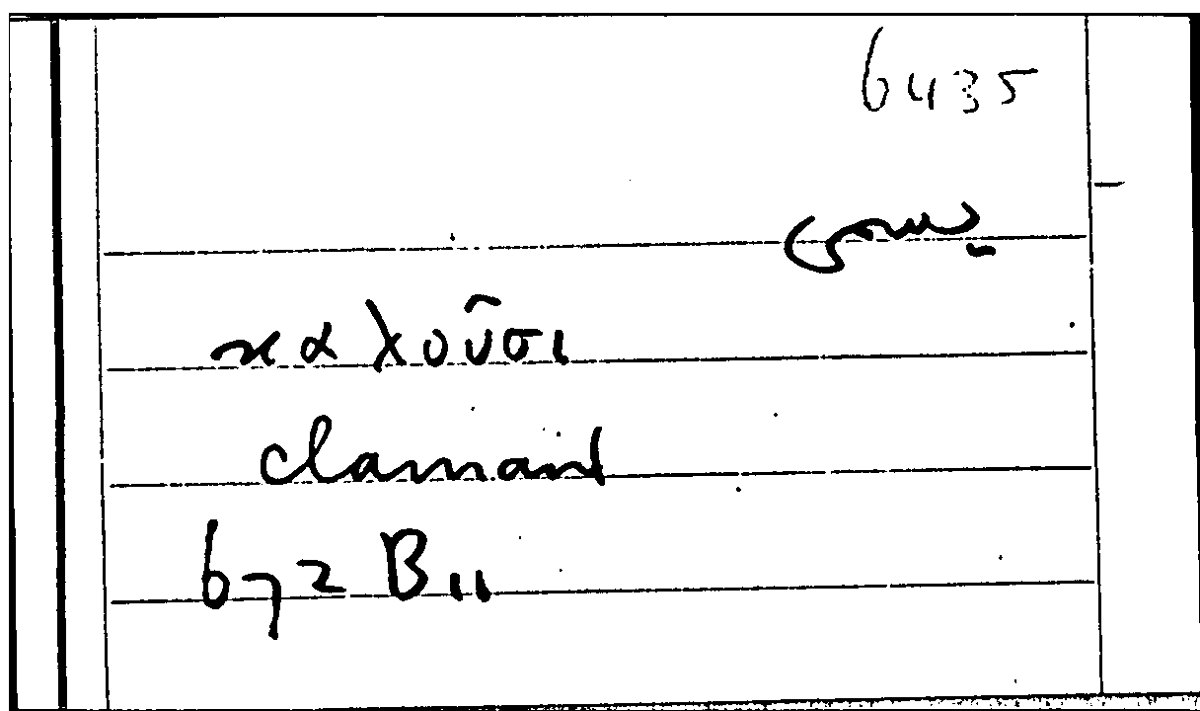 6435
καλοῦσι
clamant
672 B 11